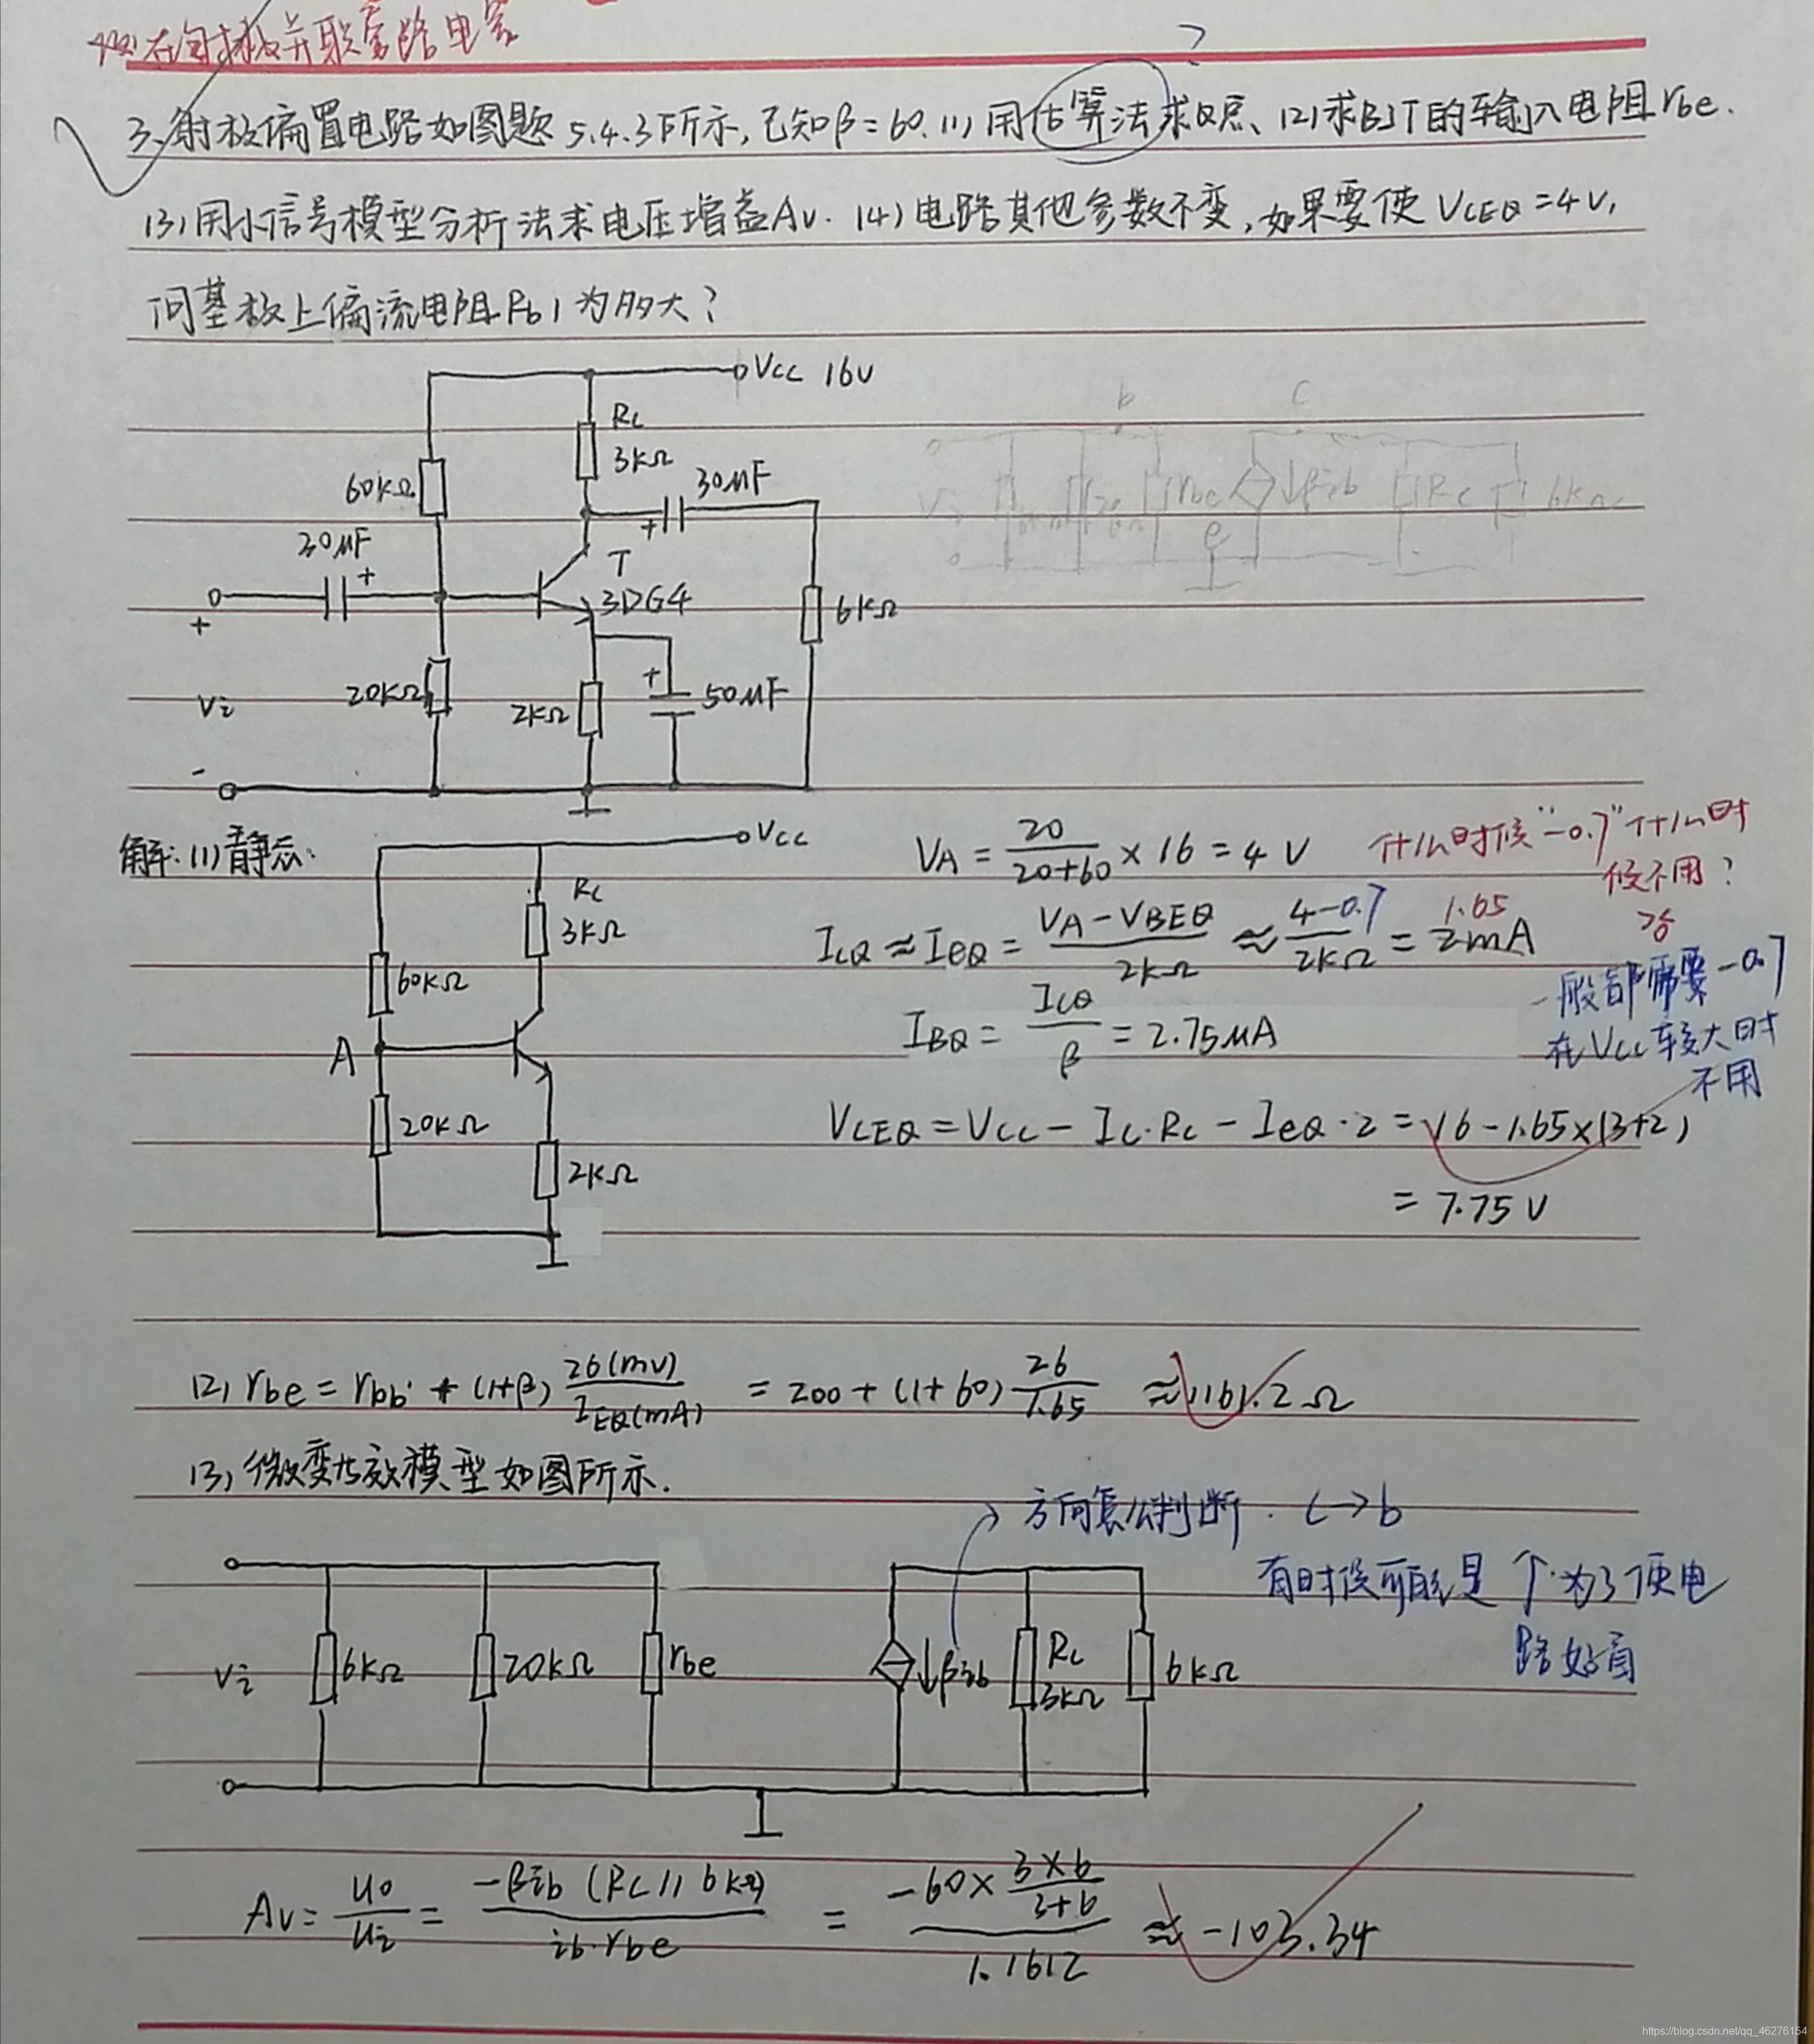 在射极并联旁路电容
?
3、射极偏置电路如图题5.4.3所示,已知β=60.(1)用估算法求Q点、(2)求BJT的输入电阻rbe.
(3)用小信号模型分析法求电压增益Av. (4)电路其他参数不变,如果要使VCEQ=4V,
问基极上偏流电阻Rb1为多大?
Vcc 16V
Rc
3kΩ
60kΩ
30μF
30μF
+
+
T
3DG4
+
6kΩ
20kΩ
2kΩ
+
50μF
Vi
-
b
c
rbe
↓βib
Rc
6kΩ
e
解:(1)静态:
Vcc
Rc
3kΩ
60kΩ
A
20kΩ
2kΩ
VA = 20/(20+60) × 16 = 4 V
什么时候“-0.7”什么时
候不用?
ICQ ≈ IEQ = (VA-VBEQ)/2kΩ ≈ (4-0.7)/2kΩ = 2mA
1.65
一般都需要-0.7
在Vcc较大时
不用
IBQ = ICQ/β = 2.75μA
VCEQ = Vcc - Ic·Rc - IeQ·2 = 16-1.65×(3+2)
= 7.75 V
(2) rbe = rbb' + (1+β) 26(mV)/IEQ(mA) = 200 + (1+60) 26/1.65 ≈ 1161.2 Ω
(3) 微变等效模型如图所示.
方向怎么判断. c→b
有时候可能是 ↑ 为了使电
路好看
Vi
6kΩ
20kΩ
rbe
↓βib
Rc
3kΩ
6kΩ
Av = uo/ui = -βib (Rc // 6kΩ)/(ib·rbe) = (-60× (3×6)/(3+6))/1.1612 ≈ -103.34
https://blog.csdn.net/qq_46276154